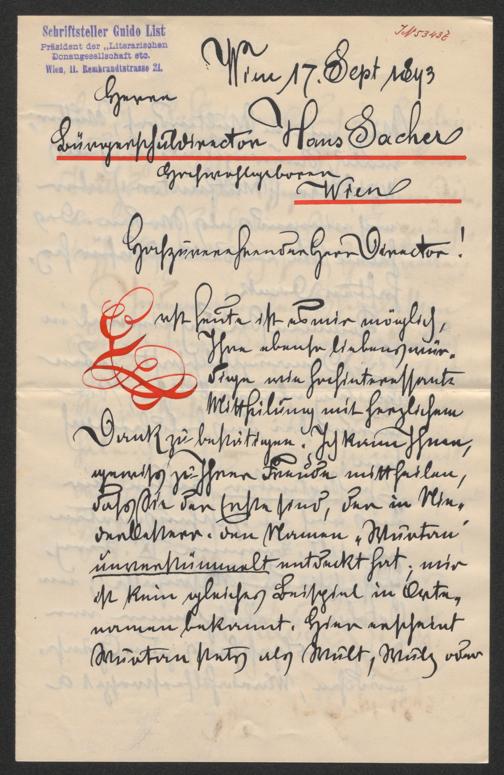 Schriftsteller Guido List
Präsident der „Literarischen
Donaugesellschaft etc.
Wien, II. Rembrandtstrasse 21.
Wien 17. Sept 1893
Herrn
Bürgerschuldirector Hans Sacher
Hochwohlgeboren
Wien
Hochzuverehrender Herr Director!
Erst heute ist es mir möglich,
Ihre ebenso liebenswür-
dige wie hochinteressante
Mittheilung mit herzlichem
Dank zu bestätigen. Ich kann Ihnen,
gewiss zu Ihrer Freude mittheilen,
dass Sie der Erste sind, der in Nie-
derösterr. den Namen „Wuotan“
unverstümmelt entdeckt hat; mir
ist kein gleiches Beispiel in Orts-
namen bekannt. Hier erscheint
Wuotan stets als Wult, Wulz oder